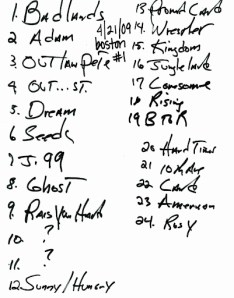 1. Badlands
2 Adam
3 OUTlaw Pete
4/21/09
boston
#1
4 OUT...ST.
5. Dream
6 Seeds
7 J. 99
8. GhosT
9. Rais You Hand
10. ?
11. ?
12 Sunny/Hungry
13 Prom Card
14. Wrestler
15. Kingdom
16 Jungle land
17 Lonesome
18 Rising
19 BTR
20 Hard Times
21 10th Ave
22 Card
23 American
24. Rosy